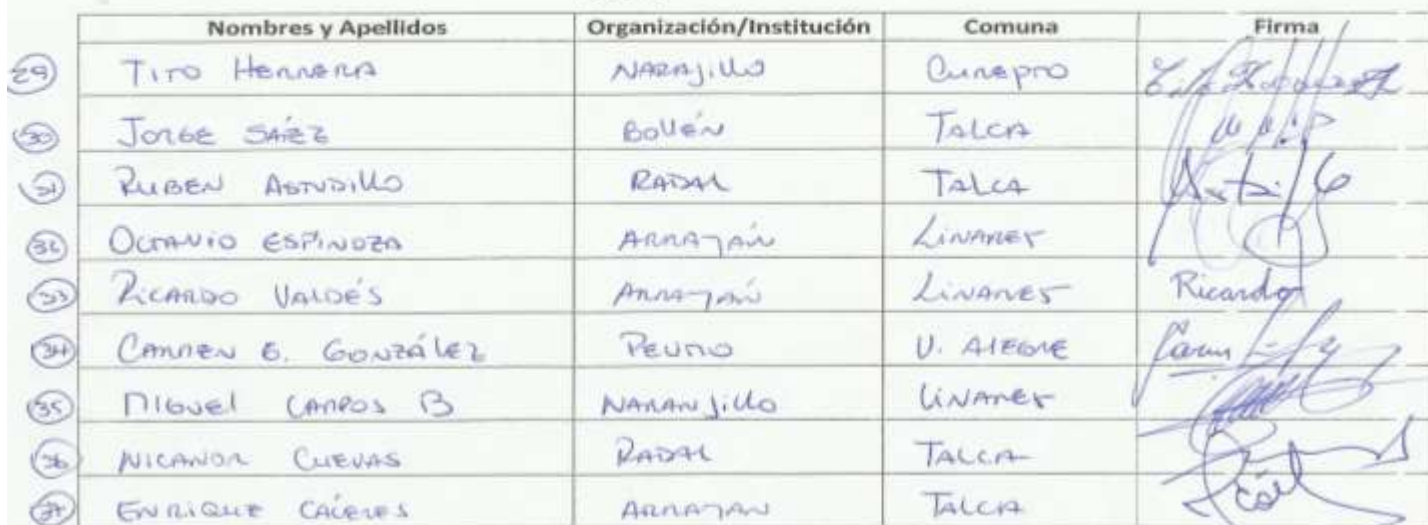 Nombres y Apellidos Organización/Institución Comuna Firma
29 TITO HERRERA NARAJILLO CUREPTO
30 JORGE SÁEZ BOLLÉN TALCA
31 RUBEN ASTUDILLO RADAL TALCA
32 OCTAVIO ESPINOZA ARRAYÁN LINARES
33 RICARDO VALDÉS ARRAYÁN LINARES Ricardo
34 CARMEN E. GONZÁLEZ PEUMO V. ALEGRE
35 MIGUEL CAMPOS B NARANJILLO LINARES
36 NICANOR CUEVAS RADAL TALCA
37 ENRIQUE CÁCERES ARRAYAN TALCA